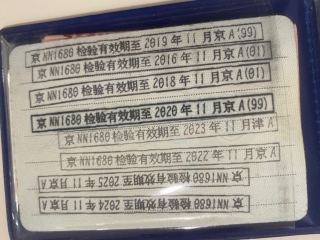 京NN1680检验有效期至2019年11月京A(99)
京NN1680检验有效期至2016年11月京A(01)
京NN1680检验有效期至2018年11月京A(01)
京NN1680检验有效期至2020年11月京A(99)
京NN1680检验有效期至2023年11月津A
京NN1680检验有效期至2022年11月京A
京NN1680检验有效期至2025年11月京A
京NN1680检验有效期至2024年11月京A